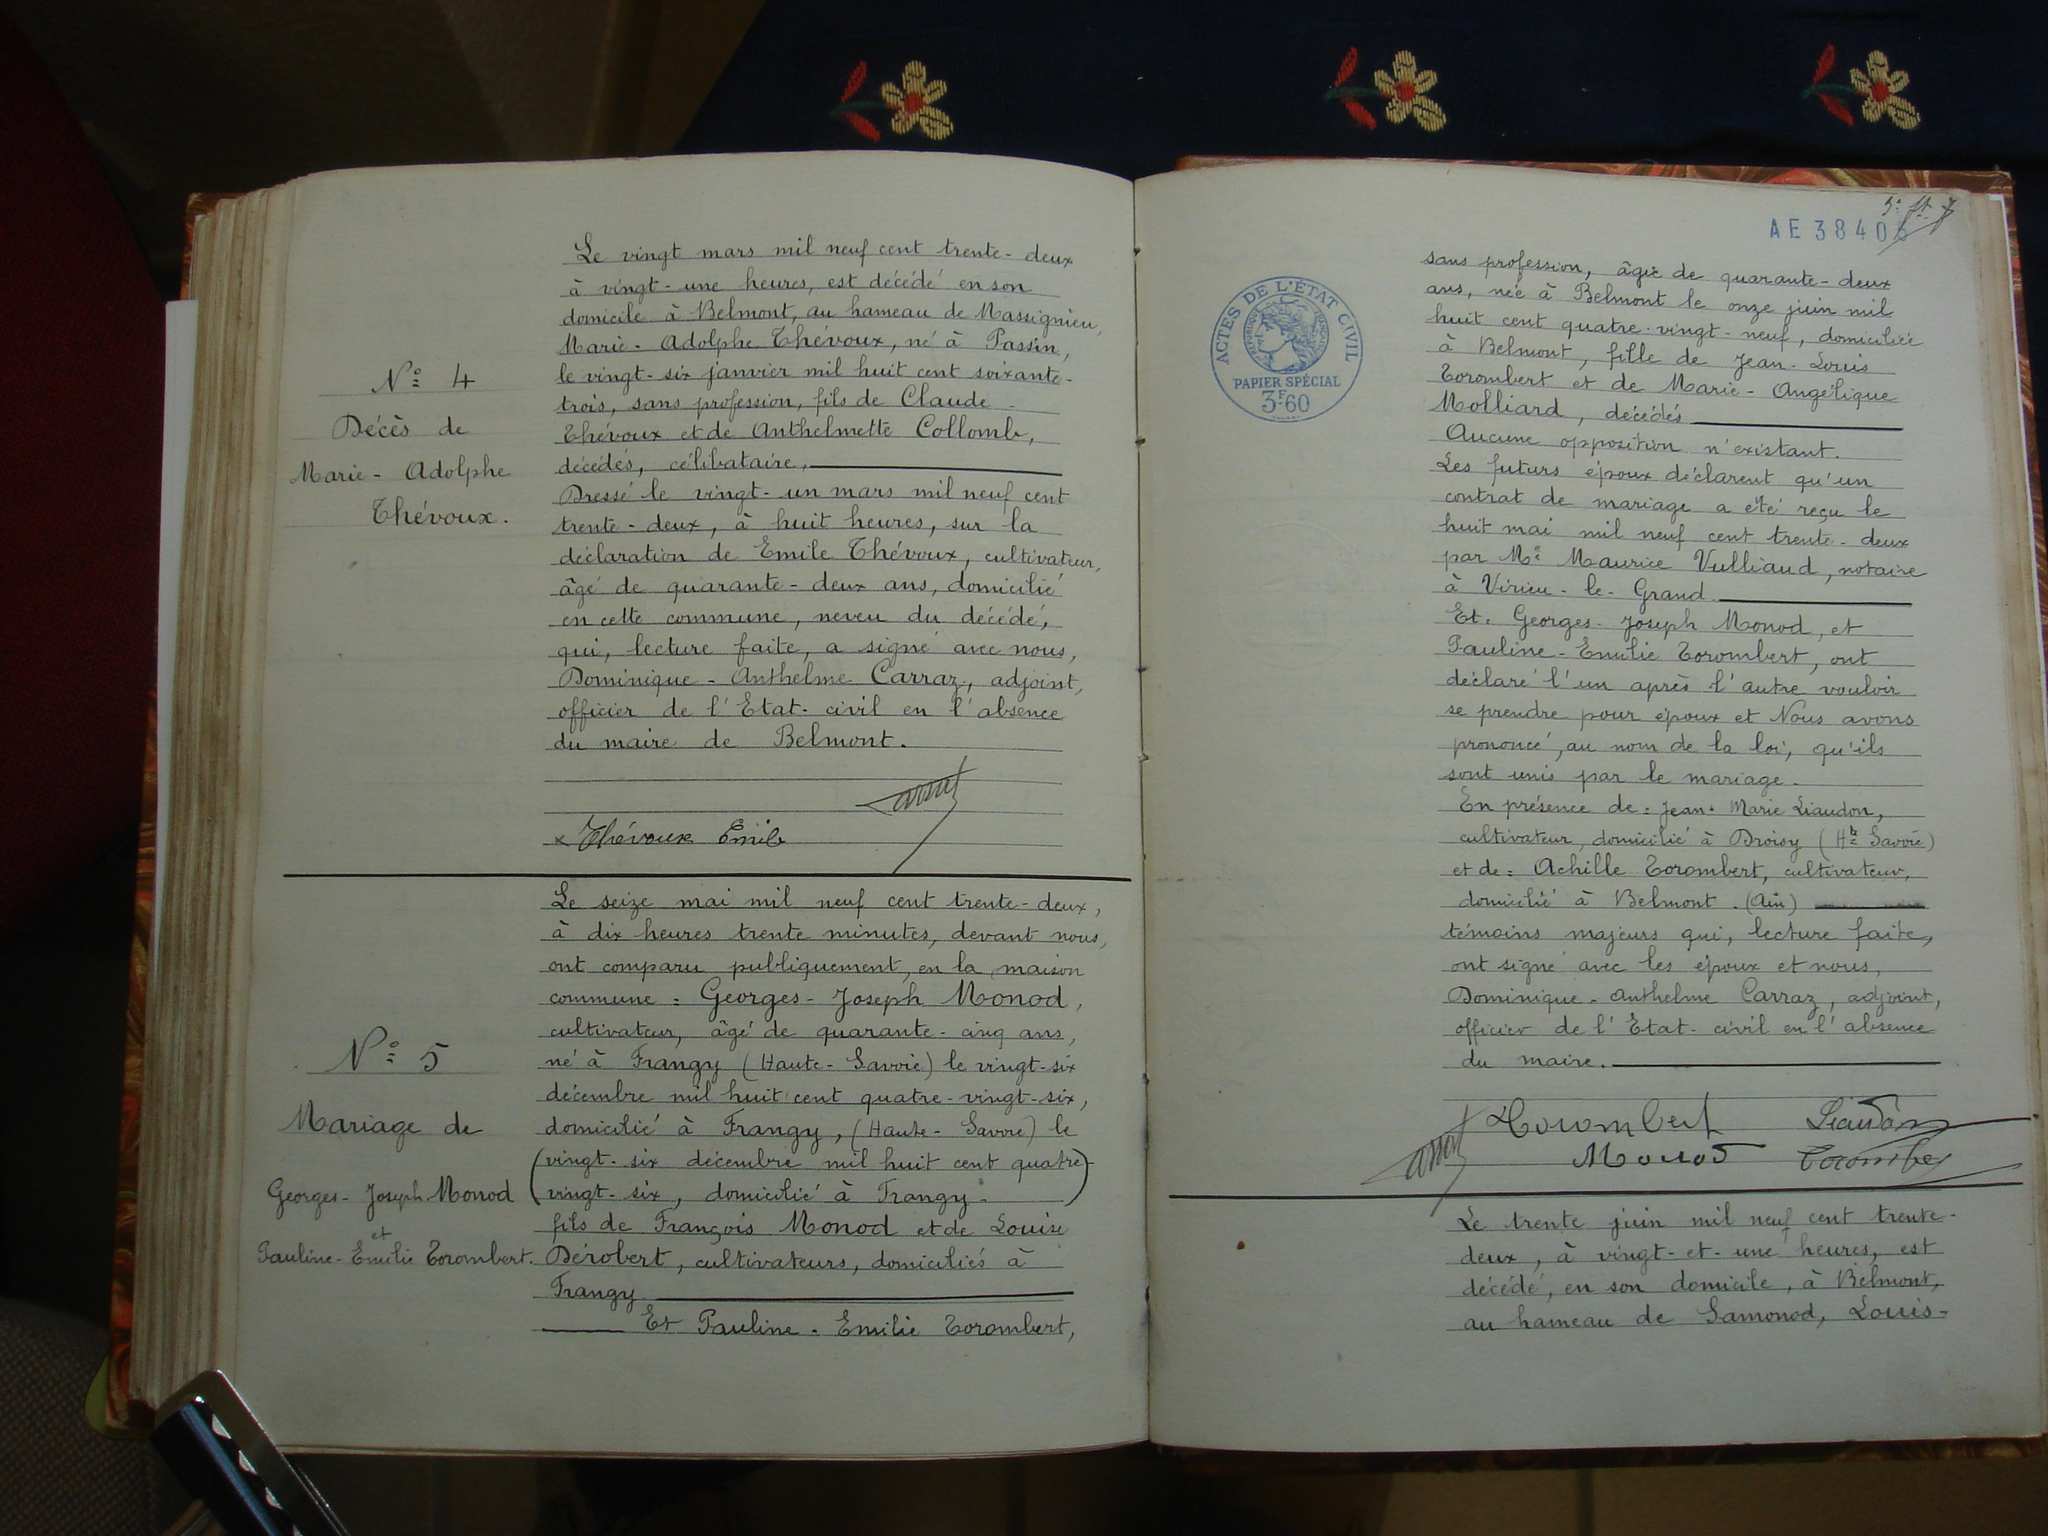 N° 4
Décès de
Marie-Adolphe
Thévoux.
Le vingt mars mil neuf cent trente-deux
à vingt-une heures, est décédé en son
domicile à Belmont, au hameau de Massignieu,
Marie-Adolphe Thévoux, né à Passin,
le vingt-six janvier mil huit cent soixante-
trois, sans profession, fils de Claude
Thévoux et de Anthelmette Collomb,
décédés, célibataire.
Dressé le vingt-un mars mil neuf cent
trente-deux, à huit heures, sur la
déclaration de Emile Thévoux, cultivateur,
âgé de quarante-deux ans, domicilié
en cette commune, neveu du décédé,
qui, lecture faite, a signé avec nous,
Dominique-Anthelme Carraz, adjoint,
officier de l'Etat-civil en l'absence
du maire de Belmont.
Carraz
x Thévoux Emile
N° 5
Mariage de
Georges-Joseph Monod
et
Pauline-Emilie Torombert.
Le seize mai mil neuf cent trente-deux,
à dix heures trente minutes, devant nous,
ont comparu publiquement, en la maison
commune = Georges-Joseph Monod,
cultivateur, âgé de quarante-cinq ans,
né à Frangy (Haute-Savoie) le vingt-six
décembre mil huit cent quatre-vingt-six,
domicilié à Frangy, (Haute-Savoie) le
(vingt-six décembre mil huit cent quatre-
vingt-six, domicilié à Frangy.)
fils de François Monod et de Louise
Dérobert, cultivateurs, domiciliés à
Frangy
Et Pauline-Emilie Torombert,
AE 3840
ACTES DE L'ÉTAT CIVIL
PAPIER SPÉCIAL
3F60
sans profession, âgée de quarante-deux
ans, née à Belmont le onze juin mil
huit cent quatre-vingt-neuf, domiciliée
à Belmont, fille de Jean-Louis
Torombert et de Marie-Angélique
Molliard, décédés
Aucune opposition n'existant.
Les futurs époux déclarent qu'un
contrat de mariage a été reçu le
huit mai mil neuf cent trente-deux
par Me Maurice Vulliaud, notaire
à Virieu-le-Grand.
Et. Georges-Joseph Monod, et
Pauline-Emilie Torombert, ont
déclaré l'un après l'autre vouloir
se prendre pour époux et Nous avons
prononcé, au nom de la loi, qu'ils
sont unis par le mariage.
En présence de = Jean-Marie Liaudon,
cultivateur, domicilié à Droisy (Hte Savoie)
et de = Achille Torombert, cultivateur,
domicilié à Belmont. (Ain)
témoins majeurs qui, lecture faite,
ont signé avec les époux et nous,
Dominique-Anthelme Carraz, adjoint,
officier de l'Etat-civil en l'absence
du maire.
Torombert Liaudon
Carraz Monod Torombert
Le trente juin mil neuf cent trente-
deux, à vingt-et-une heures, est
décédé, en son domicile, à Belmont,
au hameau de Samonod, Louis-